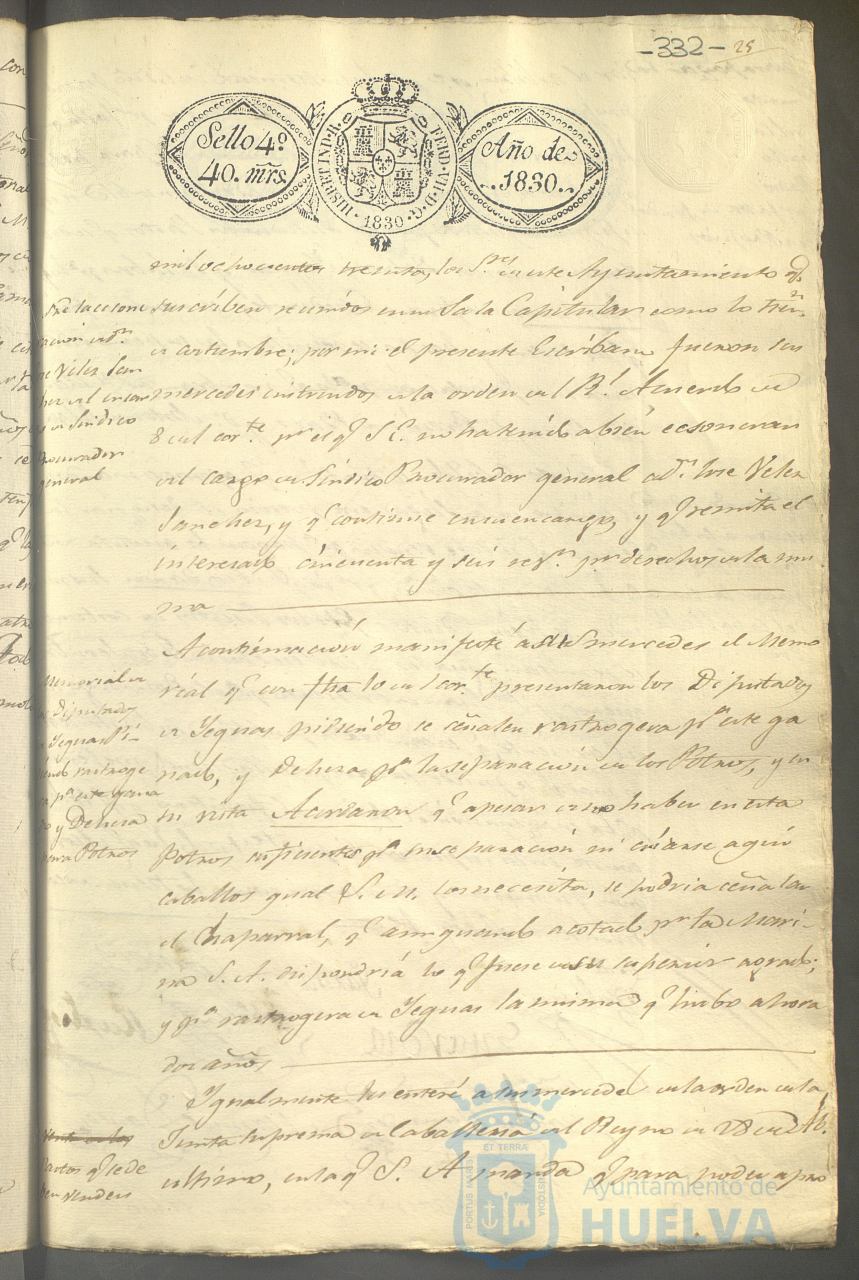 -332- 25
Sello 4º
40. mrs.
HISP. ET IND. R. FERD. VII. D. G.
1830
Año de
1830.
mil ochocientos treinta, los S.res en este Ayuntamiento q.e
suscriben reunidos en su Sala Capitular como lo tien.n
costumbre; por mi el presente Escribano fueron sus
mercedes instruidos en la orden del R.l Acuerdo
8 del cor.te p.r el q.e S. E. no ha tenido abien ecsonerar
del cargo de Síndico Procurador general a D.n Jose Velez
Sanchez, y q.e continue en su encargo, y q.e remita el
interesado cincuenta y seis r.s v.n p.r derechos de la mis
ma
A continuación manifesté á sus mercedes el Memo
rial q.e con fha 10 del cor.te presentaron los Diputados
de Yeguas pidiendo se señalen rastrogera p.a este ga
nado, y Dehesa p.a la separación de los Potros, y en
su vista Acordaron q.e apesar de no haber en esta
Potros suficientes p.a su separación ni criarse aquí
caballos qual S. M. los necesita, se podria señalar
el Chaparral, q.e aun quando acotado p.r la Mari-
na S. A. dispondriá lo q.e fuese de su superior agrado;
y p.a rastrogera de Yeguas la misma q.e hubo ahora
dos años
Ygualmente les enteré a sus mercedes de la orden de la
Junta Suprema de Caballeriá del Reyno de 28 de
ultimo, en la q.e S. A manda q.e para poder apro
cion a D.n
Velez San
chez del encar
Síndico
Procurador
general
Memorial de
Diputados
Yeguas Pi-
diendo rastroge
ra p.a este gana
do y Dehesa
para Potros
q.e se de
ben vender
PORTUS MARIS ET TERRÆ CUSTODIA
Ayuntamiento de
HUELVA